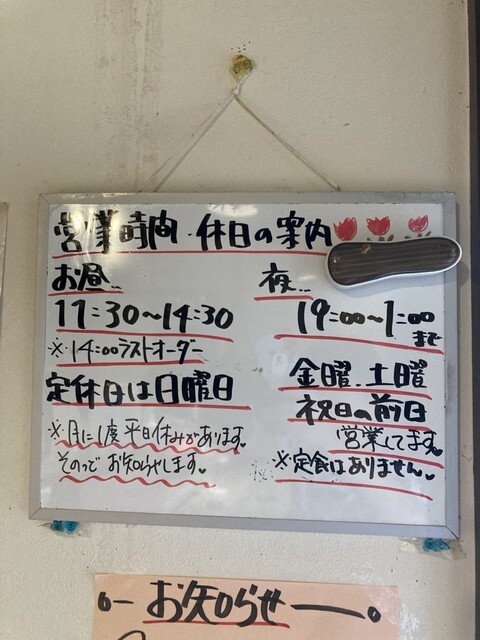 営業時間・休日の案内
お昼…
11:30〜14:30
※14:00ラストオーダー
定休日は日曜日
※月に1度平日休みがあります。
そのつどお知らせします。
夜…
19:00〜1:00
まで
金曜、土曜
祝日の前日
営業してます。
※定食はありません。
お知らせ